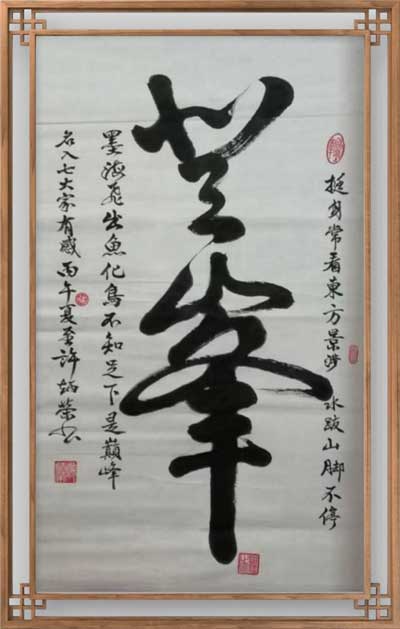 挺身常看東方景涉水跋山脚不停
登峯
墨海飛出魚化鳥不知足下是巔峰
名入七大家有感丙午夏至許炳榮書